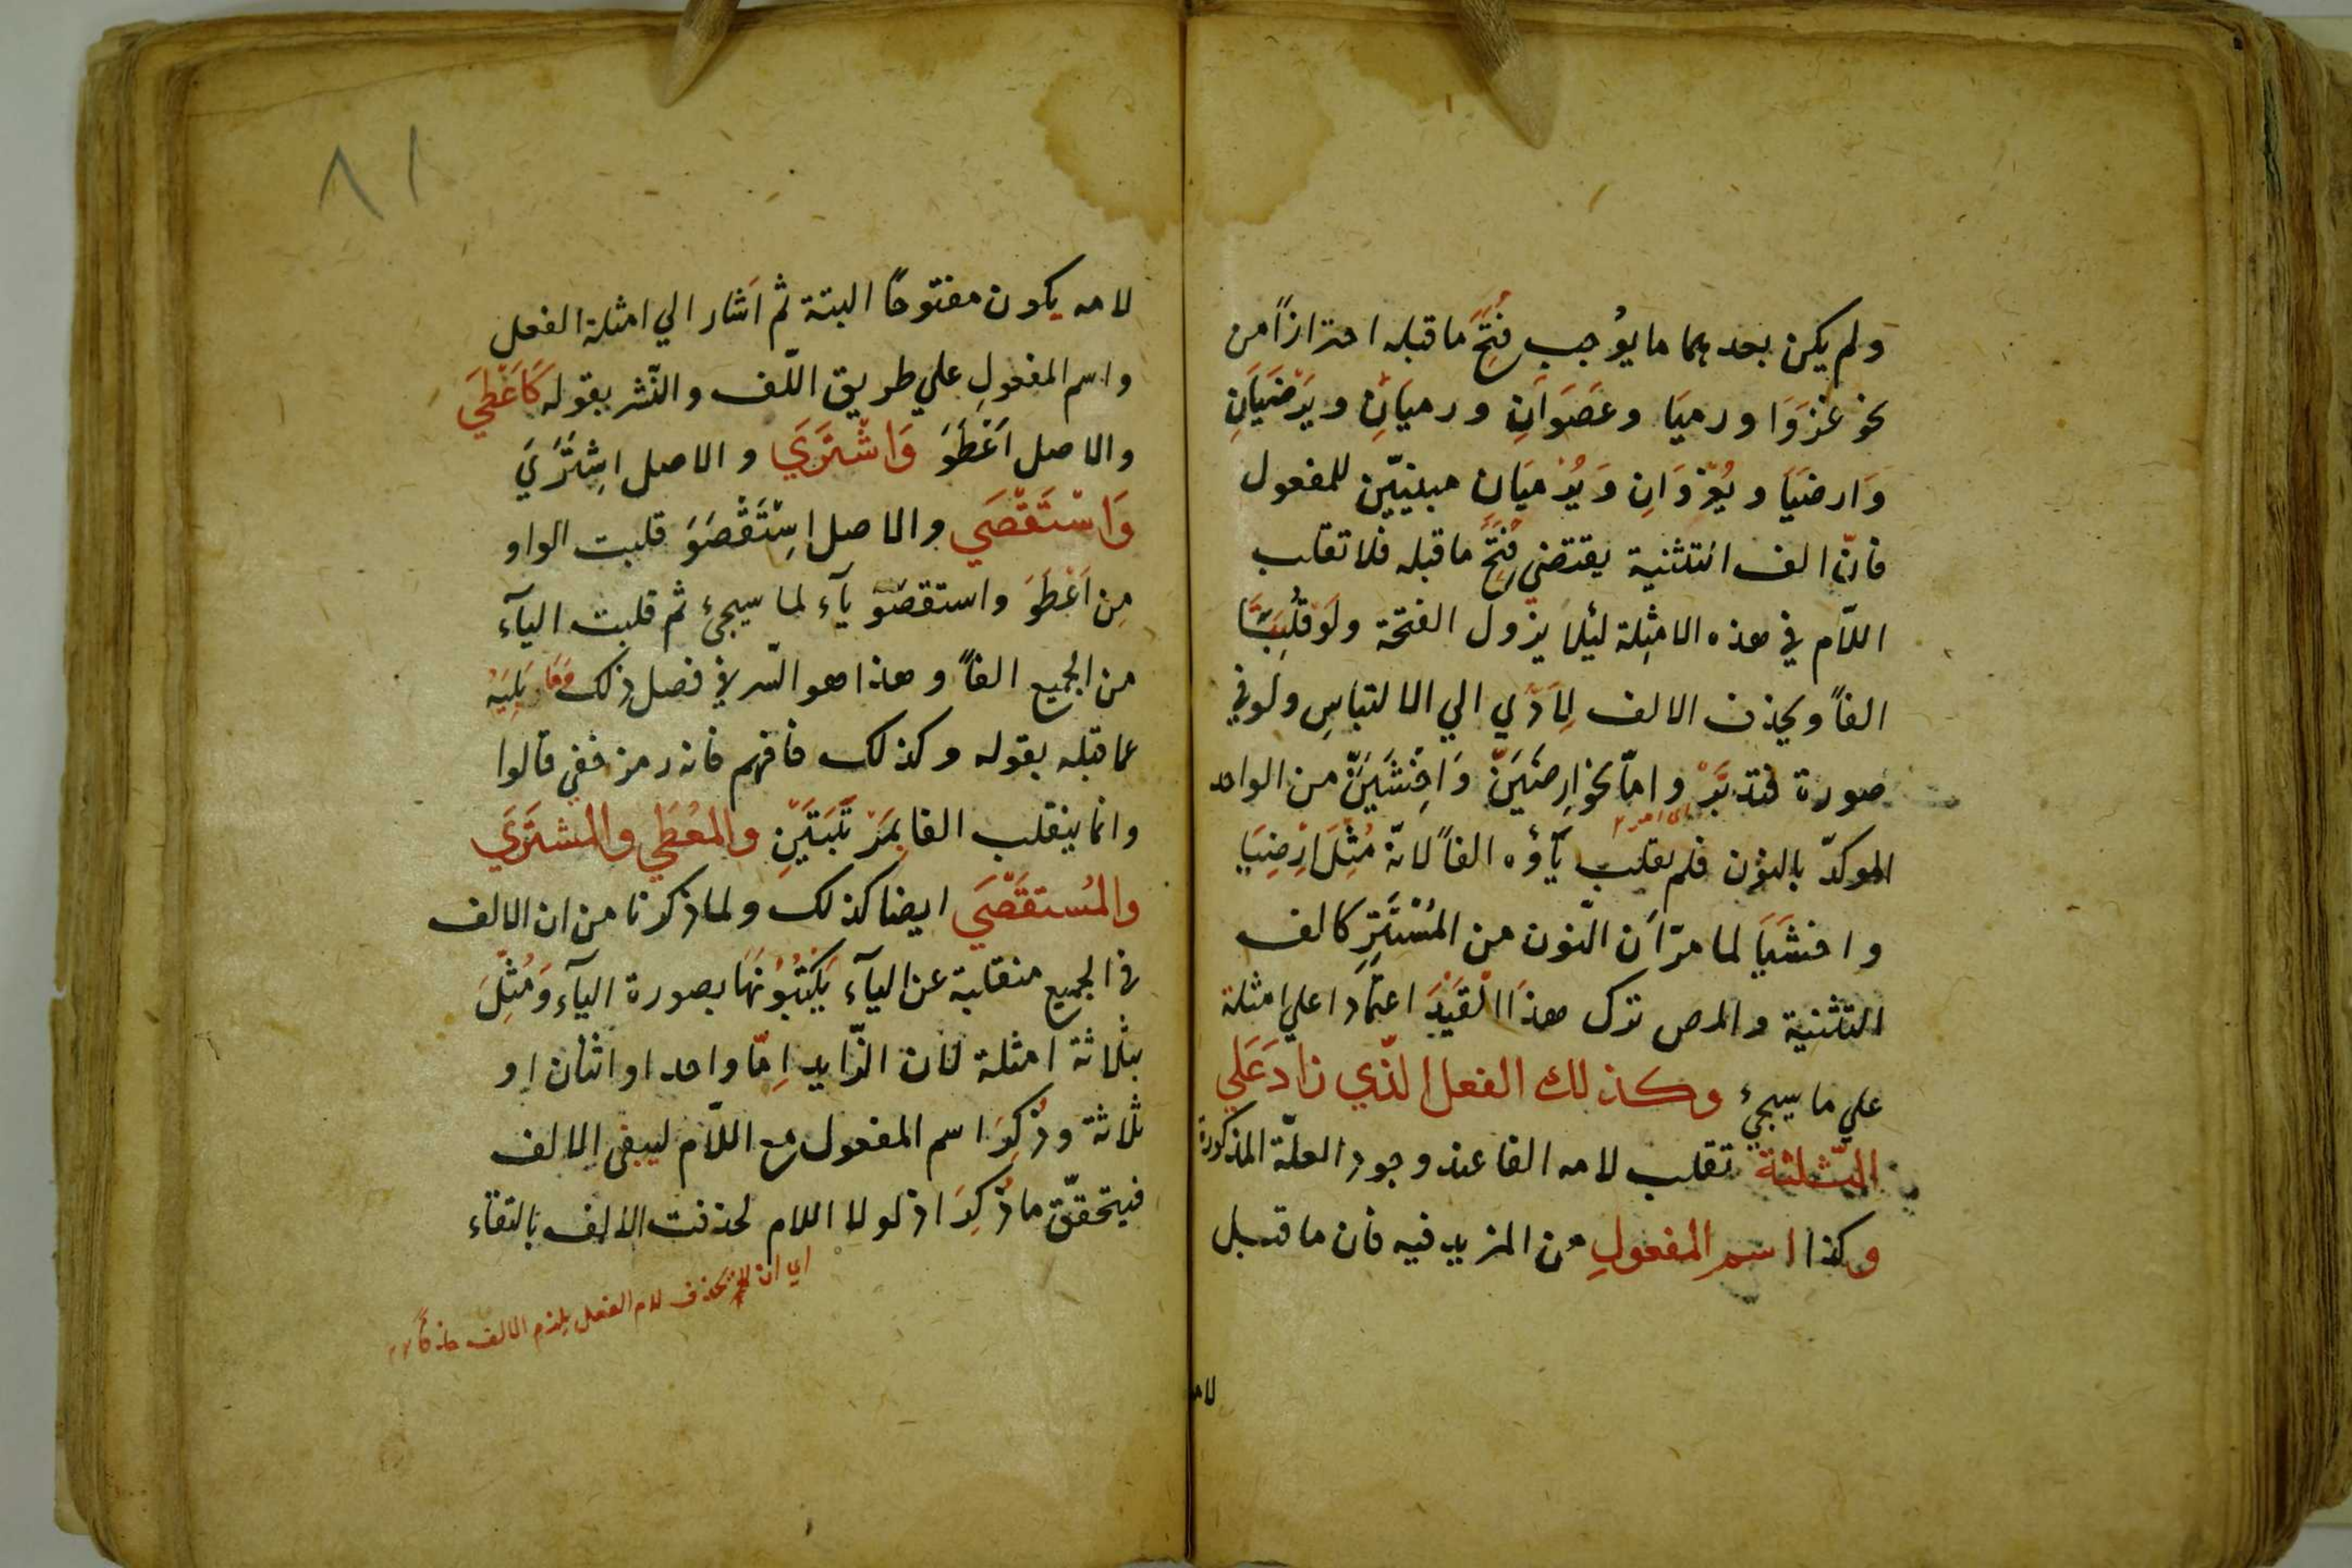 ولم يكن بعدهما ما يوُجب فُتِحَ ما قبله احترازاً من
نحو غزَوَا ورميَا وعَصَوَانِ ورميَانِ ويَرْضَيَانِ
وَارضَيَا ويُغْزَوَانِ وَيُرْميَانِ مبنييّن للمفعول
فانّ الف التثنية يقتضي فُتِحَ ما قبله فلا تقلب
اللّام في هذه الامثِلة لئلا يزول الفتحة ولَوْ قُلِبَتْ
الفاً ويحذف الالف لِاَدّي الي الالتباسِ ولو في
صورة فتدبَّرْ وامّا نحو ارِضَيَنّ وَاخْشَيَنّ من الواحد
الموكدّ بالنوّن فلم يقلب يآؤه الفاً لانّه مُثِلَ ارْضِيَا
واخشَيَا لما مرّ اَن النّون من المُسْتَتِرِ كالف
التثنية والمص ترك هذَا القَيْدَ اعتمادا علي امثلة
علي ما سيجئ وكذلك الفعل الّذي زادَ عَلَي
الثّلثة تقلب لامه الفا عند وجود العلّة المذكورة
وكذا اسم المفعولِ من المزيد فيه فان ما قبل
لامه
٨١
لامه يكون مفتوحًا البتة ثم اَشار الي امثلة الفعل
واسم المفعولِ علي طريق اللّف والنّشر بقوله كَاَعْطَي
والاصل اَعْطَوَ وَاشْتَرَي والاصل اشِتَرَيَ
وَاسْتَقْصَي والاصل اسِتَقْصَوَ قلبت الواو
مِن اَعْطَوَ واستقصَوَ يآء لما سيجئ ثم قلبت اليآء
من الجميع الفاً وهذا هو السّر في فصل ذلك وما يَلِيَهُ
عما قبله بقوله وكذلك فافهم فانه رمز خفي قالوا
وانما ينقلب الفا بِمَرْتَبَتَيْنِ والمعُطَي والمشتَرَي
والمُستقَصَي ايضا كذلك ولما ذكرنا من ان الالف
في الجميع منقلبة عن اليآء يَكْتُبُوُنَهَا بصورة اليآء وَمُثِّلَ
بثلاثة امثلة لان الزّايد اِمّا واحد او اثنان او
ثلاثة وذُكِرَ اسم المفعول مع اللّام ليبقي الالف
فيتحقّق ما ذُكِرَ اذ لولا اللام لحذفت الالف بالتقاء
اي ان تحذف لام الفعل يلزم الالف